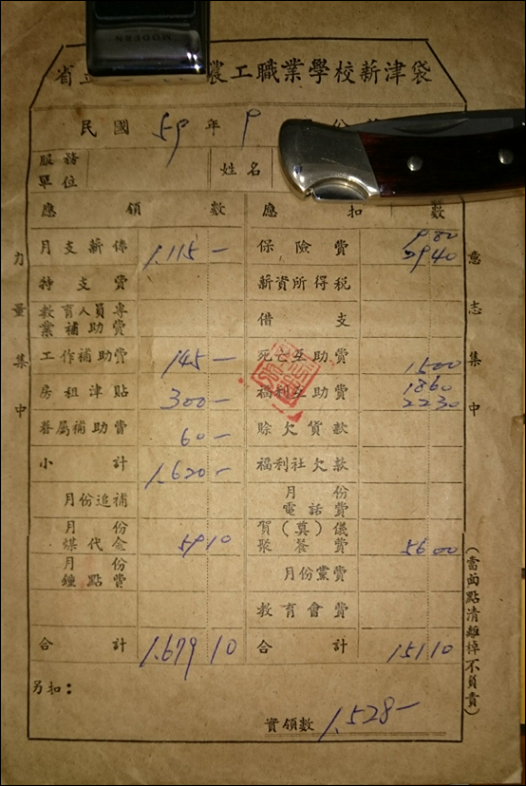 MODERN
省立 農工職業學校薪津袋
民國 59 年 9
服務單位 姓名
應領數 應扣數
月支薪俸 1,115— 保險費 980 2940
特支費 薪資所得稅
教育人員專業補助費 借支
工作補助費 145— 死亡互助費 1500
房租津貼 300— 福利互助費 1860 2230
眷屬補助費 60— 賒欠貨款
小計 1,620— 福利社欠款
月份追補 月份電話費
月份煤代金 5910 賀(奠)儀聚餐費 5600
月份鐘點費 月份黨費
教育會費
合計 1,679 10 合計 15110
另扣：
實領數 1,528—
力量集中
意志集中
(當面點清離櫃不負責)